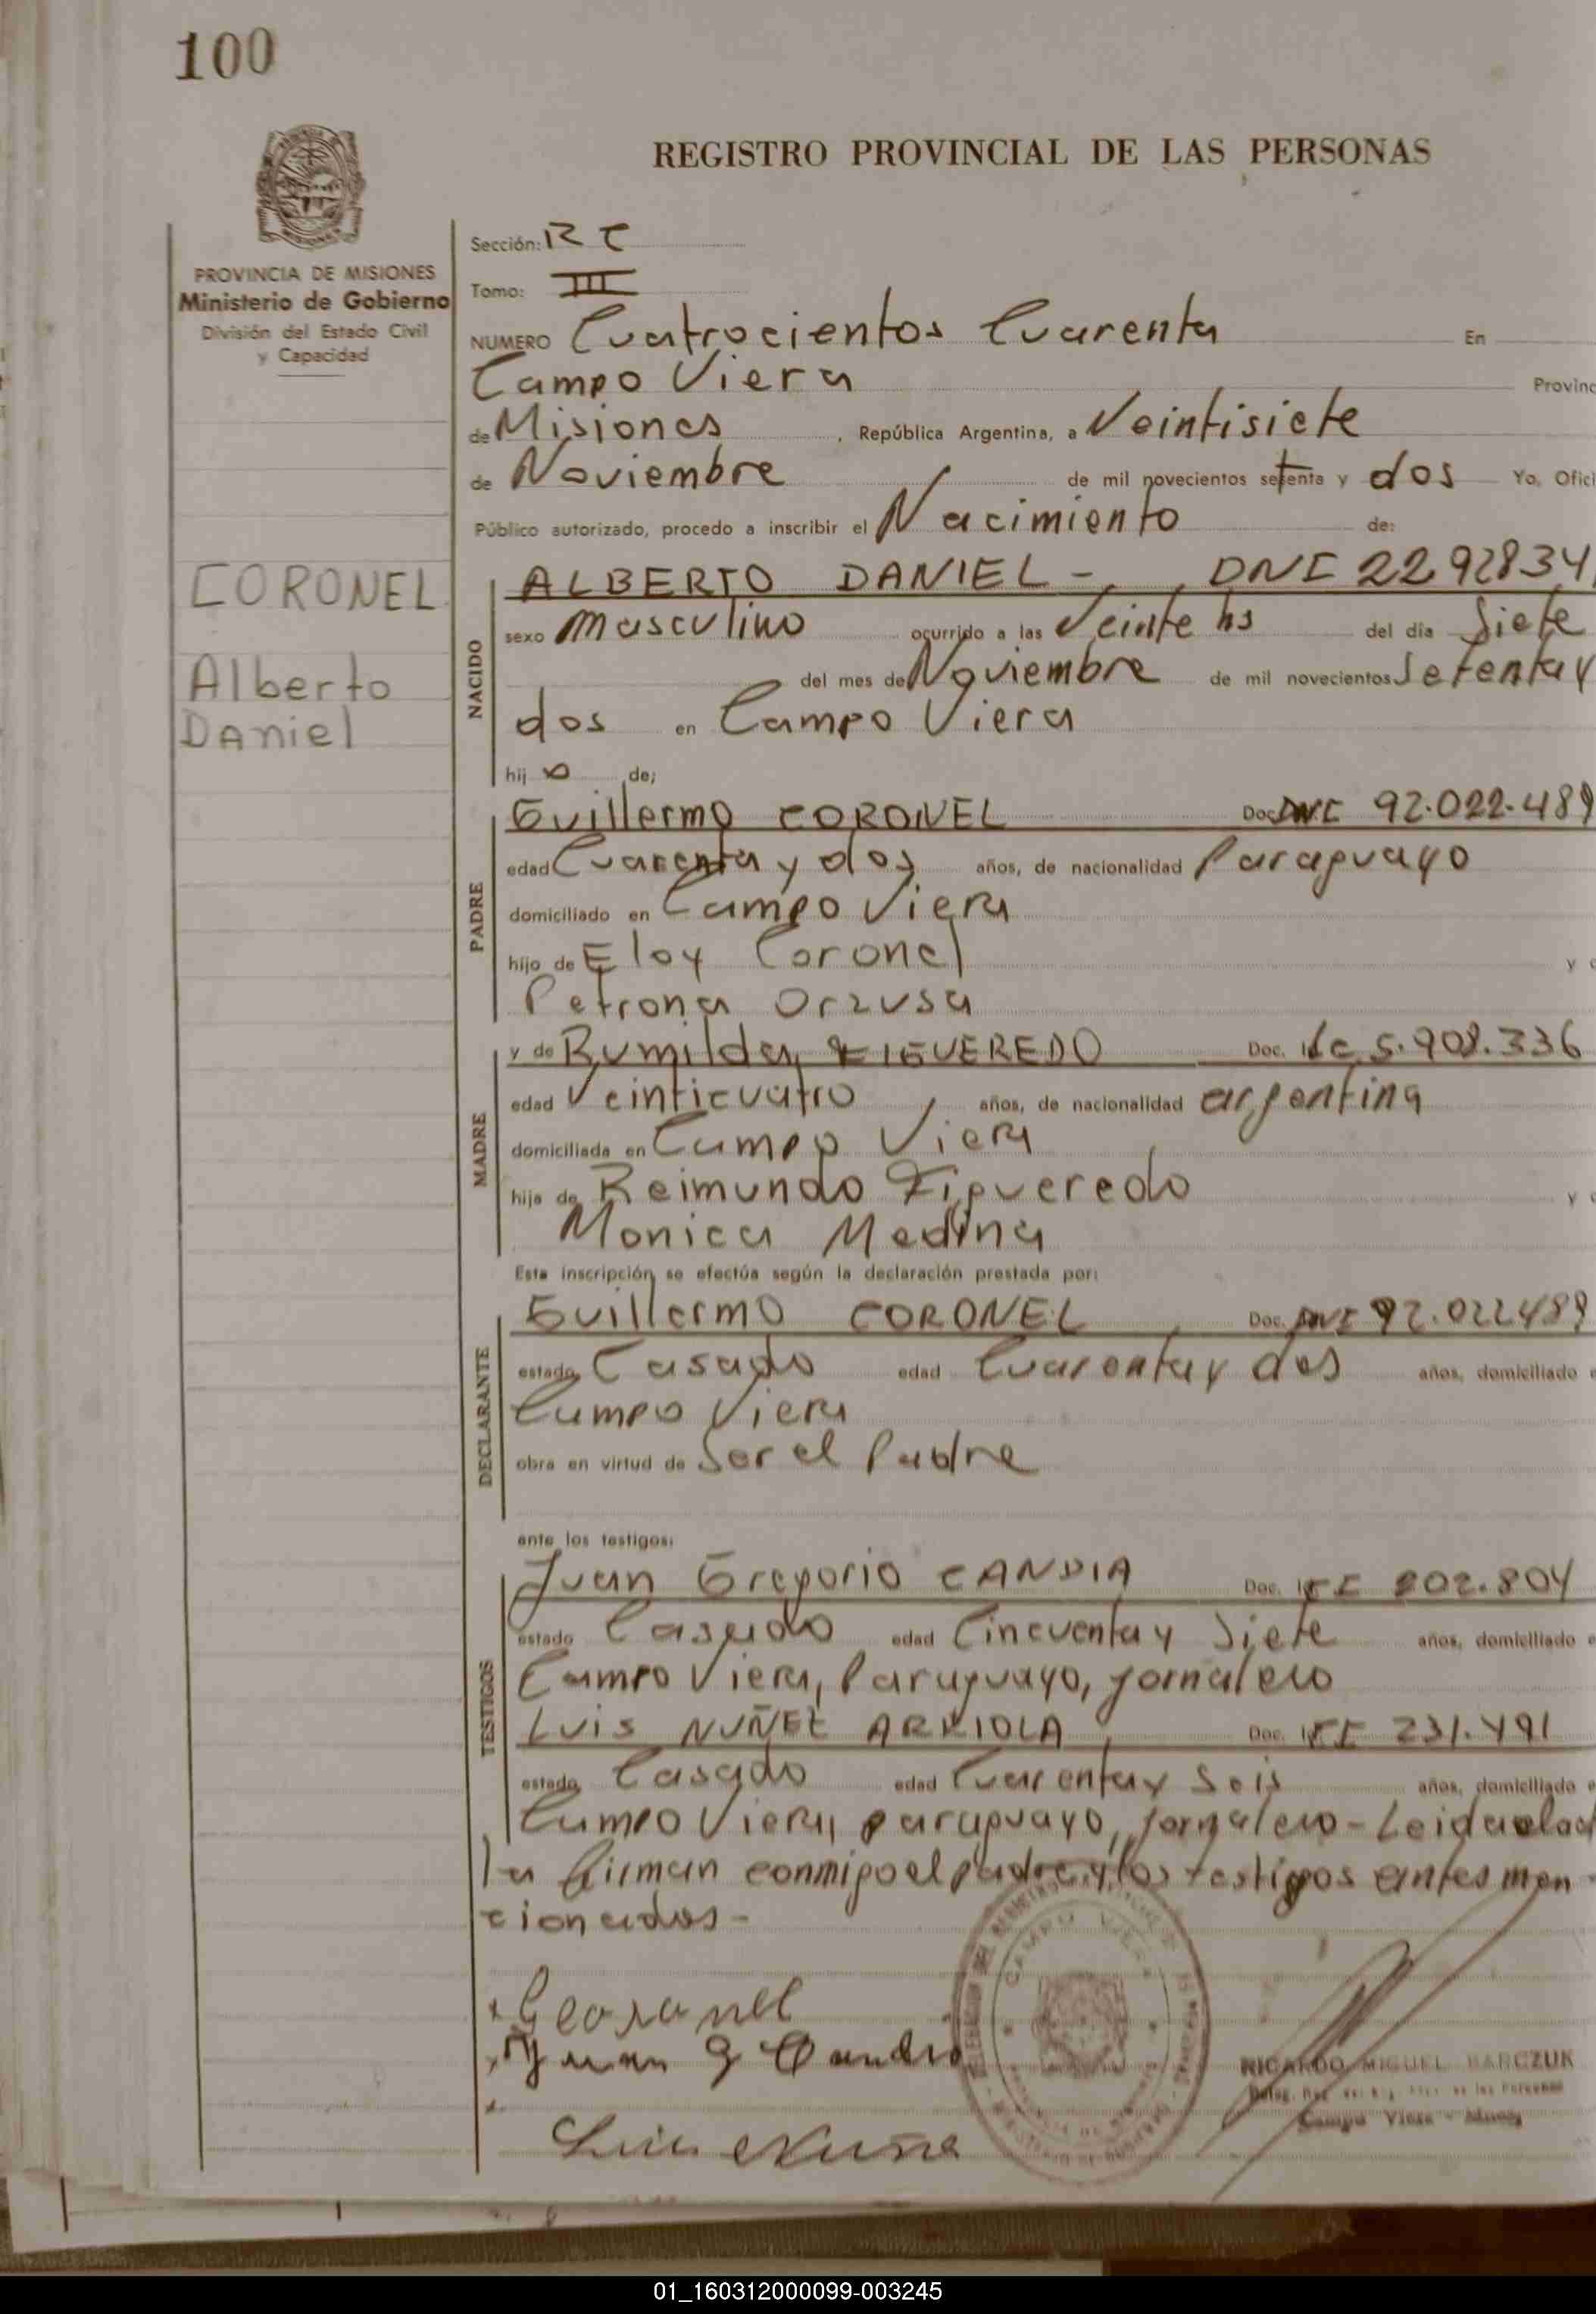 100
REGISTRO PROVINCIAL DE LAS PERSONAS
PROVINCIA DE MISIONES
Ministerio de Gobierno
División del Estado Civil
y Capacidad
CORONEL
Alberto
Daniel
Sección:
Tomo: III
NUMERO Cuatrocientos Cuarenta En
Campo Viera Provinc
de Misiones , República Argentina, a Veintisiete
de Noviembre de mil novecientos setenta y dos Yo, Ofici
Público autorizado, procedo a inscribir el Nacimiento de:
NACIDO
ALBERTO DANIEL - DNI 2292834
sexo Masculino ocurrido a las Veinte hs del día Siete
del mes de Noviembre de mil novecientos Setenta y
dos en Campo Viera
hij o de;
PADRE
Guillermo CORONEL Doc DNI 92.022.489
edad Cuarenta y dos años, de nacionalidad Paraguayo
domiciliado en Campo Viera
hijo de Eloy Coronel y
Petrona Orzusa
MADRE
y de Rumilda FIGUEREDO Doc. LC 5.908.336
edad Veinticuatro años, de nacionalidad argentina
domiciliada en Campo Viera
hija de Reimundo Figueredo y
Monica Medina
Esta inscripción se efectúa según la declaración prestada por:
DECLARANTE
Guillermo CORONEL Doc. DNI 92.022489
estado Casado edad Cuarenta y dos años, domiciliado
Campo Viera
obra en virtud de Ser el Padre
ante los testigos:
TESTIGOS
Juan Gregorio CANDIA Doc. 202.804
estado Casado edad Cincuenta y Siete años, domiciliado
Campo Viera, Paraguayo, jornalero
LUIS NUÑEZ ARRIOLA Doc. 231.491
estado Casado edad Cuarenta y Seis años, domiciliado
Campo Viera, paraguayo, jornalero - Leida el ac
ta firman conmigo el padre y los testigos antes men
cionados -
G Coronel
Juan G Candia
Luis Nuñe
CAMPO VIERA
RICARDO MIGUEL BARCZUK
Campo Viera - Mnes
01_160312000099-003245